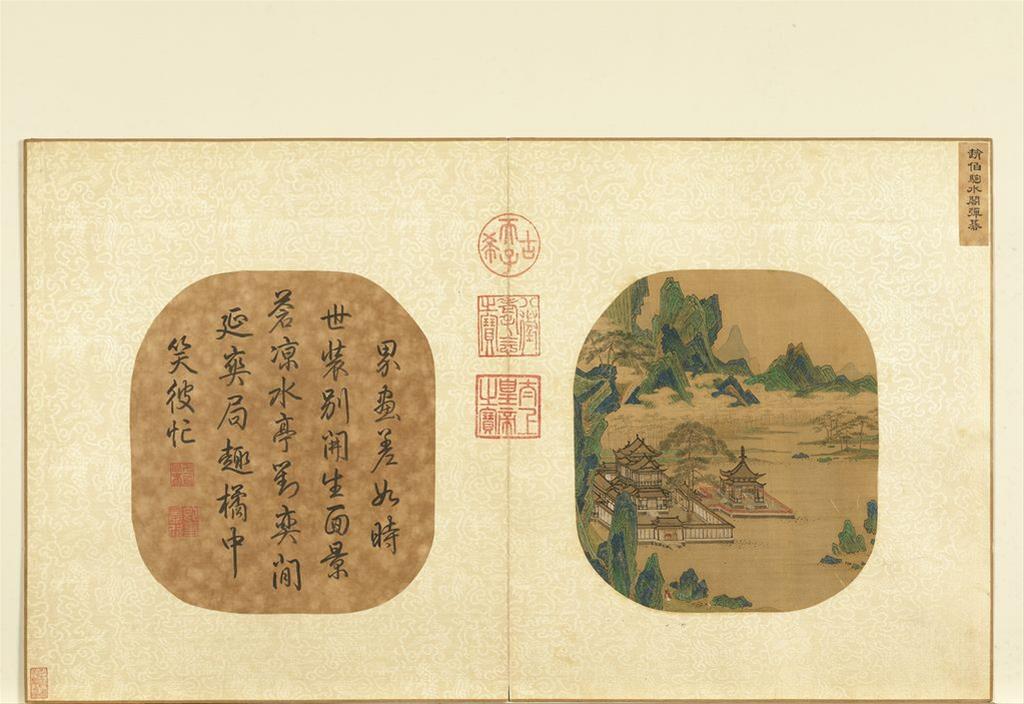 趙伯駒水閣彈棊
古希天子
八徵耄念之寶
太上皇帝之寶
界畫差如時
世裝別開生面景
蒼涼水亭對奕閒
延奕局趣橘中
笑彼忙